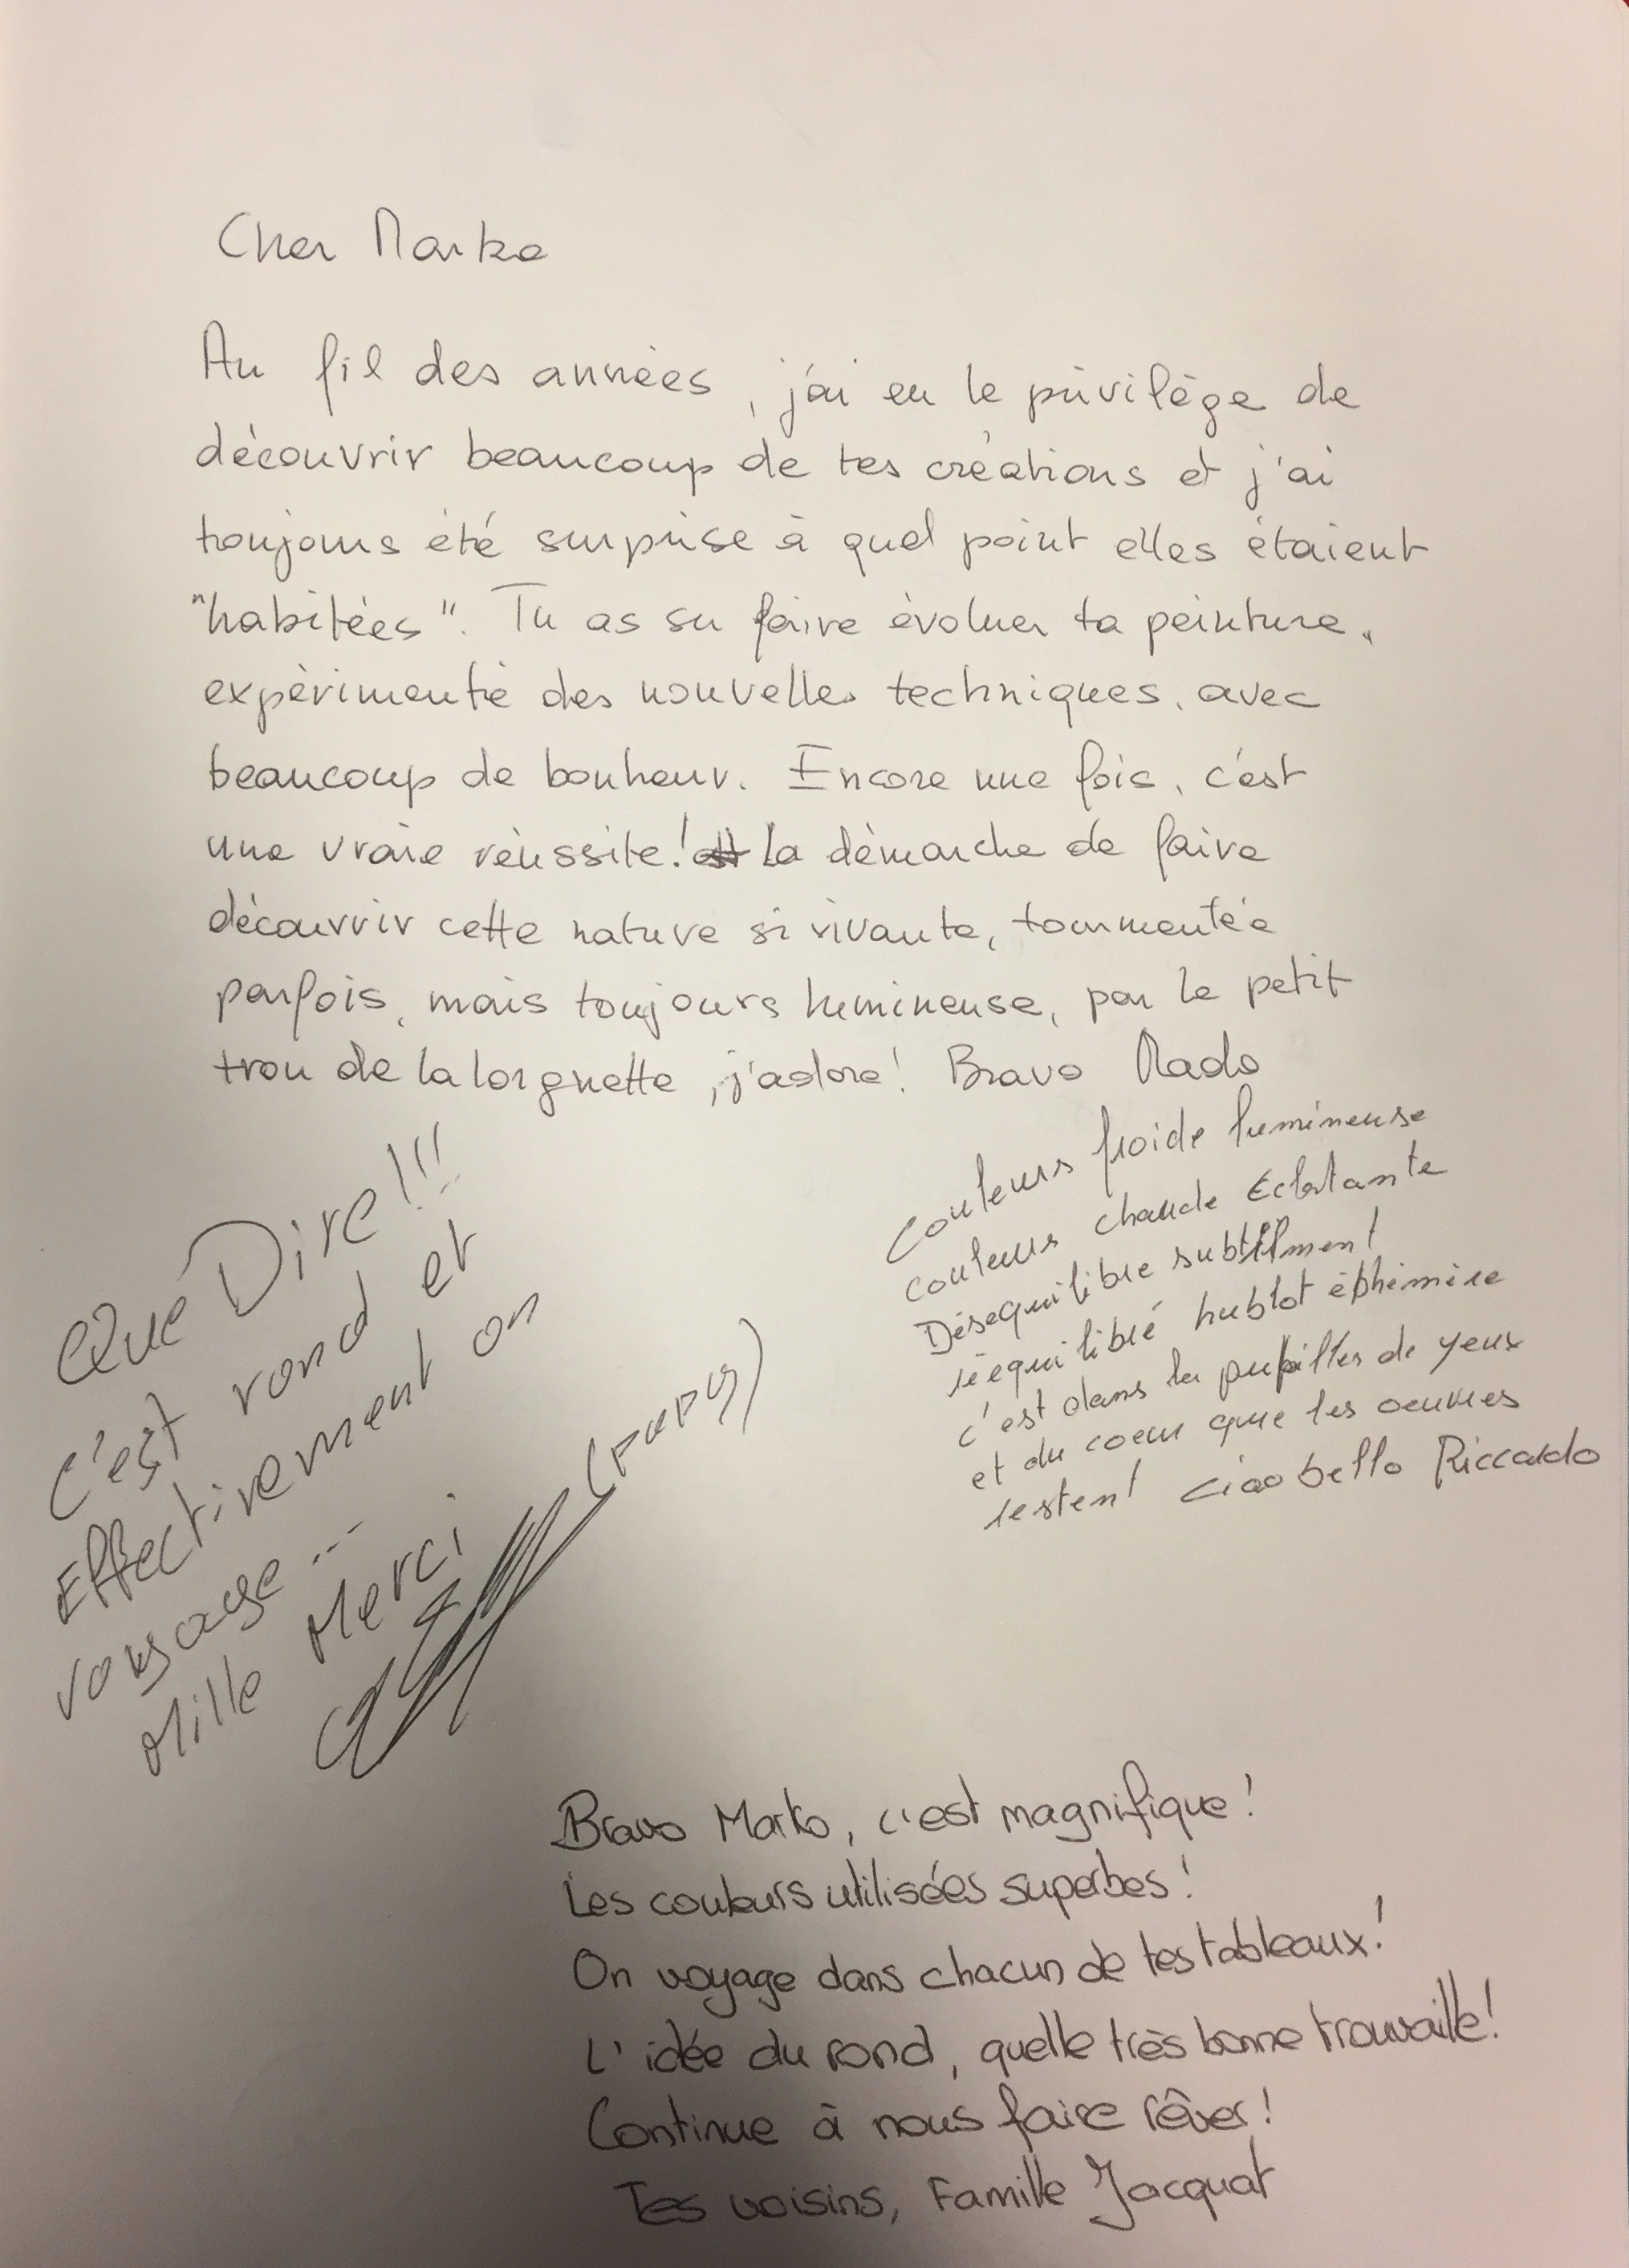 Cher Marko
Au fil des années, j'ai eu le privilège de
découvrir beaucoup de tes créations et j'ai
toujours été surprise à quel point elles étaient
"habitées". Tu as su faire évoluer ta peinture,
expérimenté des nouvelles techniques, avec
beaucoup de bonheur. Encore une fois, c'est
une vraie réussite! la démarche de faire
découvrir cette nature si vivante, tourmentée
parfois, mais toujours lumineuse, par le petit
trou de la lorgnette, j'adore! Bravo Mado
Couleurs froide lumineuse
couleurs chaude Eclatante
Désequilibre subtilment
réequilibré hublot éphémère
c'est dans la pupilles de yeux
et du coeur que les oeuvres
restent ciao bello Riccardo
Que Dire!!!
C'est rond et
Effectivement on
voyage...
Mille Merci
(PUPY)
Bravo Marko, c'est magnifique!
Les couleurs utilisées superbes!
On voyage dans chacun de tes tableaux!
L'idée du rond, quelle très bonne trouvaille!
Continue à nous faire rêver!
Tes voisins, Famille Jacquat